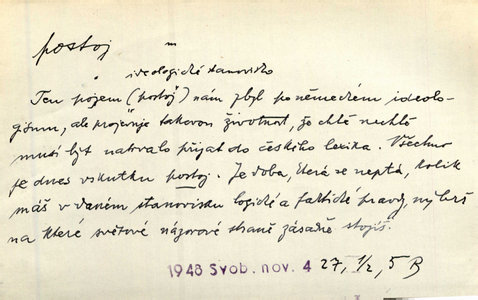 postoj m
ideologické stanovisko
Ten pojem ("postoj") nám zbyl po německém ideolo-
gismu, ale projevuje takovou životnost, že chtě nechtě
musí být natrvalo přijat do českého lexika. Všechno
je dnes vskutku postoj. Je doba, která se neptá, kolik
máš v daném stanovisku logické a faktické pravdy, nýbrž
na které světově názorové straně zásadně stojíš.
1948 Svob. nov. 4 27, 1/2, 5 B